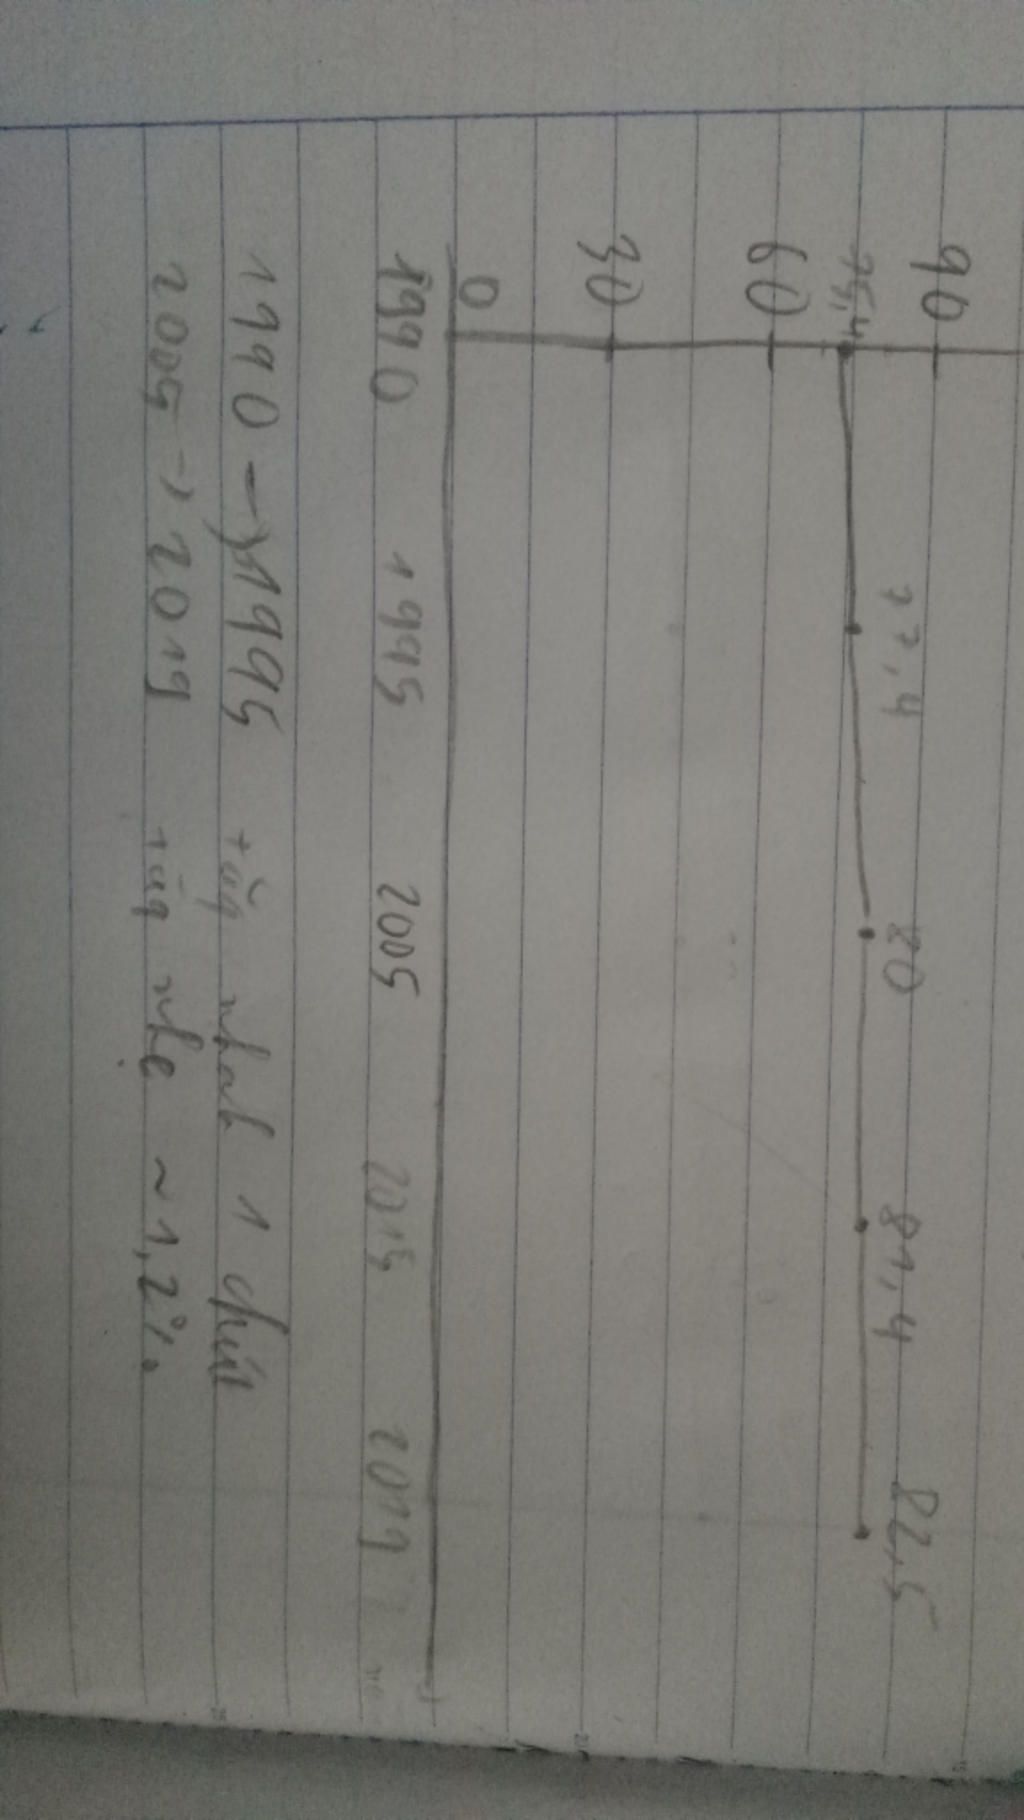 90
75,4 77,4 80 81,4 82,5
60
30
0
1990 1995 2005 2015 2019
1990 → 1995 tăng nhanh 1 chút
2005 → 2019 tăng nhẹ ~ 1,2%